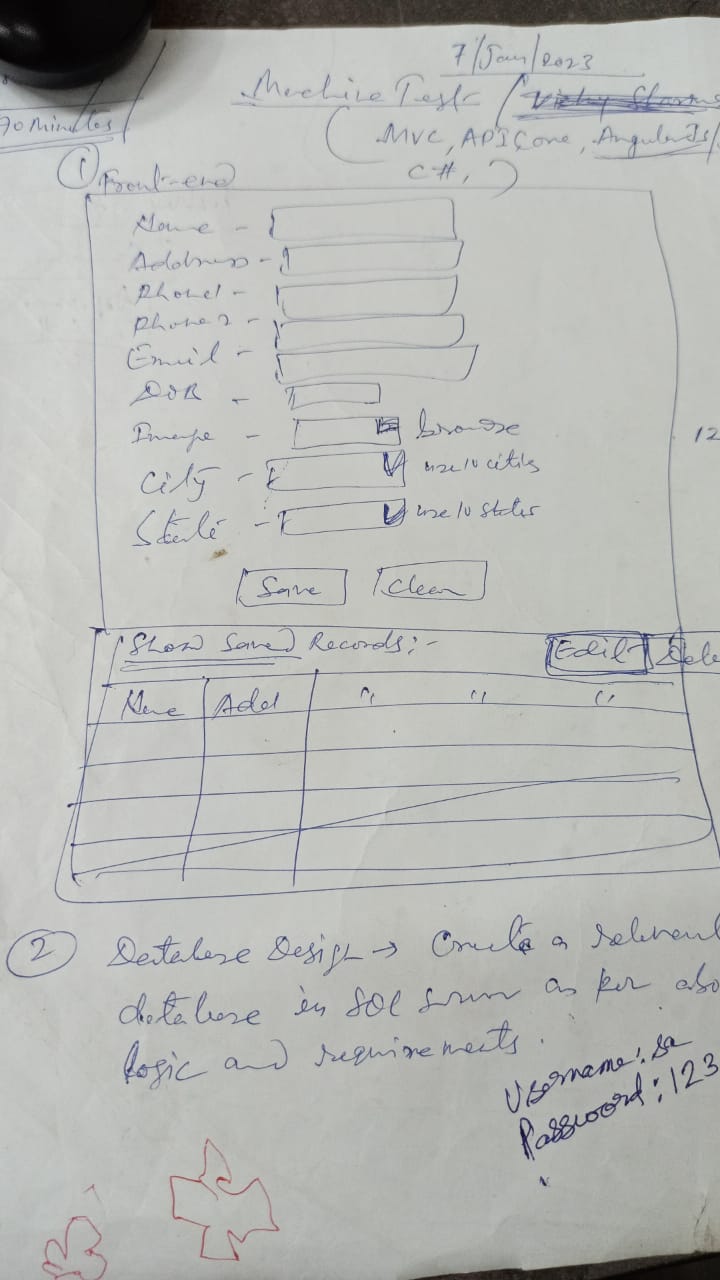 7/Jan/2023
Machine Test
70 Minutes
(MVC, API Core, AngularJs/
C#, )
① Front-end
Name -
Address -
Phone1 -
Phone2 -
Email -
DOB -
Image - browse
12
City - use 10 cities
State - use 10 states
Save Clear
Show Saved Records:- Edit Dele
Name Add " " "
② Database Design → Create a relevant
database in SQL Server as per abo
logic and requirements.
Username: sa
Password: 123